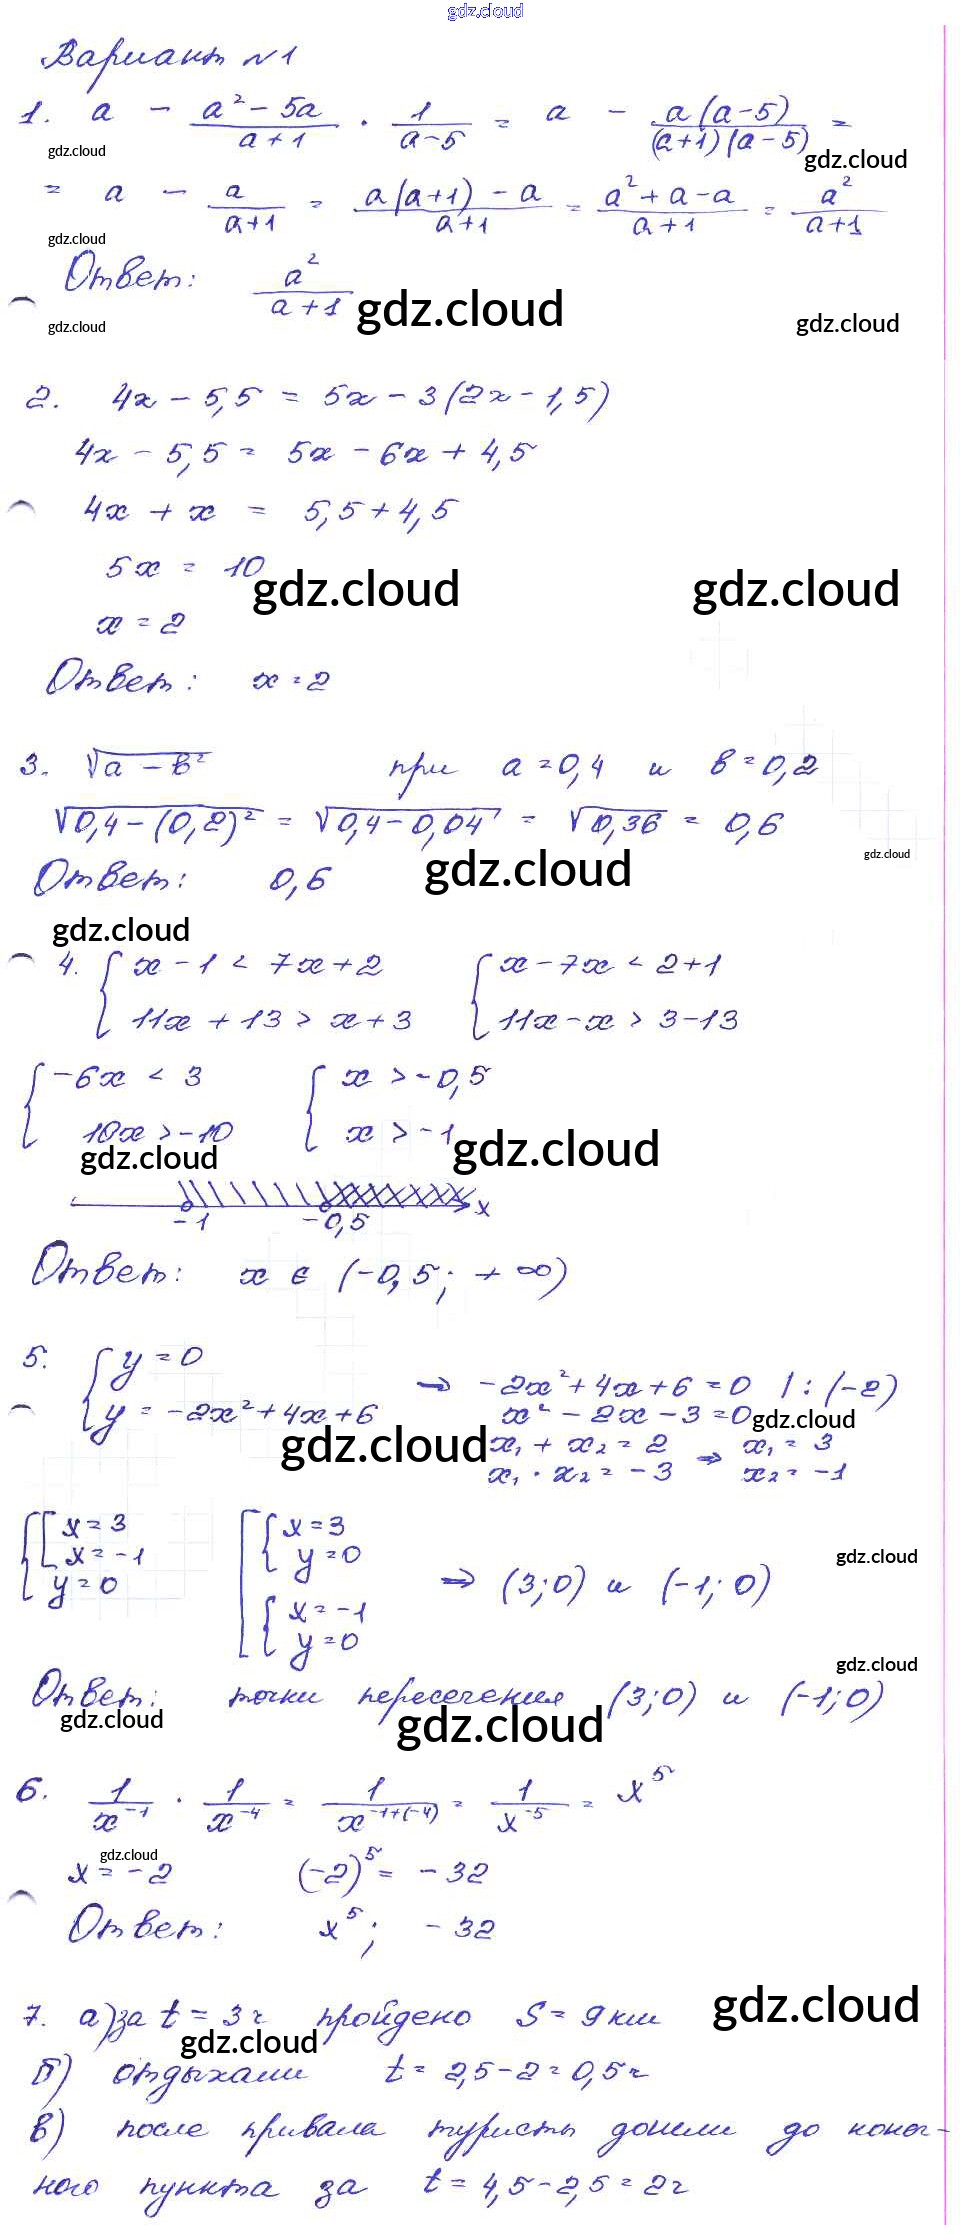 gdz.cloud
Вариант №1
1. a - (a² - 5a)/(a + 1) · 1/(a - 5) = a - a(a - 5)/((a + 1)(a - 5)) =
gdz.cloud gdz.cloud
= a - a/(a + 1) = (a(a + 1) - a)/(a + 1) = (a² + a - a)/(a + 1) = a²/(a + 1)
gdz.cloud
Ответ: a²/(a + 1)
gdz.cloud gdz.cloud gdz.cloud
2. 4x - 5,5 = 5x - 3(2x - 1,5)
4x - 5,5 = 5x - 6x + 4,5
4x + x = 5,5 + 4,5
5x = 10
gdz.cloud gdz.cloud
x = 2
Ответ: x = 2
3. √(a - b²) при a = 0,4 и b = 0,2
√(0,4 - (0,2)²) = √(0,4 - 0,04) = √(0,36) = 0,6
gdz.cloud
Ответ: 0,6
gdz.cloud
gdz.cloud
4. { x - 1 < 7x + 2 { x - 7x < 2 + 1
11x + 13 > x + 3 11x - x > 3 - 13
{ -6x < 3 { x > -0,5
10x > -10 x > -1
gdz.cloud gdz.cloud
-1 -0,5 x
Ответ: x ∈ (-0,5; +∞)
5. { y = 0
y = -2x² + 4x + 6 ⇒ -2x² + 4x + 6 = 0 | : (-2)
x² - 2x - 3 = 0
gdz.cloud gdz.cloud
x₁ + x₂ = 2 ⇒ x₁ = 3
x₁ · x₂ = -3 x₂ = -1
{ [ x = 3 [ { x = 3
x = -1 y = 0
y = 0 { x = -1
y = 0 ⇒ (3; 0) и (-1; 0)
gdz.cloud
gdz.cloud
Ответ: точки пересечения (3; 0) и (-1; 0)
gdz.cloud gdz.cloud
6. 1/x⁻¹ · 1/x⁻⁴ = 1/x⁻¹⁺⁽⁻⁴⁾ = 1/x⁻⁵ = x⁵
gdz.cloud
x = -2 (-2)⁵ = -32
Ответ: x⁵; -32
gdz.cloud
7. а) за t = 3ч пройдено S = 9км
gdz.cloud
б) отдыхали t = 2,5 - 2 = 0,5ч
в) после привала туристы дошли до конеч-
ного пункта за t = 4,5 - 2,5 = 2ч